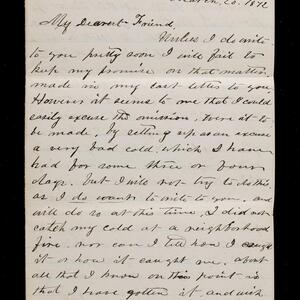 March, 20. 1872
My Dearest Friend,
Unless I do write
to you pretty soon I will fail to
keep my promise on that matter
made in my last letter to you.
However it seems to me that I could
easily excuse the omission, were it to
be made, by setting up as an excuse
a very bad cold, which I have
had for some three or four
days. but I will not try to do this,
as I do want to write to you. and
will do so at this time. I did not
catch my cold at a neighborhood
fire. nor can I tell how I caught
it or how it caught me. about
all that I know on this point is
that I have gotten it and wish